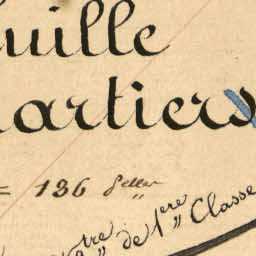 uille
artiers
= 136 
tre de 1ere Classe